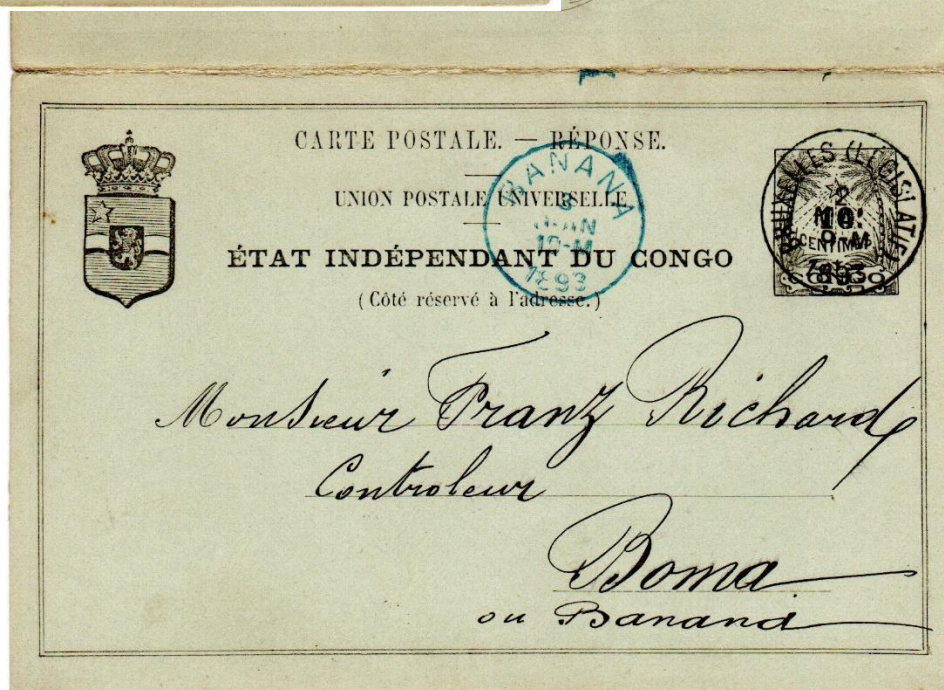 CARTE POSTALE. — RÉPONSE.
UNION POSTALE UNIVERSELLE
ÉTAT INDÉPENDANT DU CONGO
(Côté réservé à l'adresse.)
BANANA
1893
CENTIMES
1893
Monsieur Franz Richard
Controleur
Boma
ou Banana